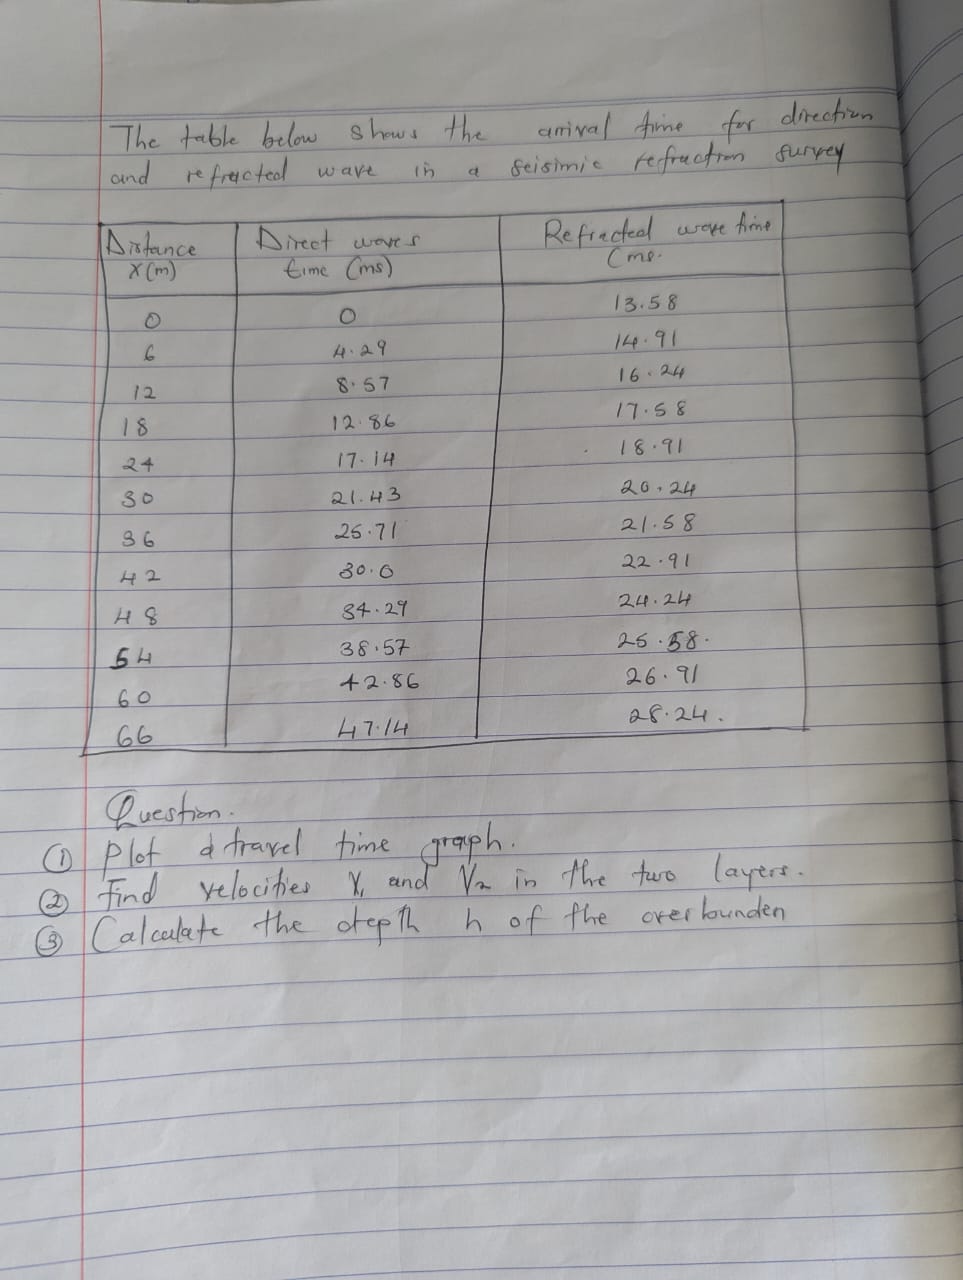 The table below shows the arrival time for direction
and refracted wave in a seisimic refraction survey
Distance X(m) Direct waves time (ms) Refracted wave time (ms.
0 0 13.58
6 4.29 14.91
12 8.57 16.24
18 12.86 17.58
24 17.14 18.91
30 21.43 20.24
36 25.71 21.58
42 30.0 22.91
48 34.29 24.24
54 38.57 25.58.
60 42.86 26.91
66 47.14 28.24.
Question.
① Plot a travel time graph.
② find velocities V₁ and V₂ in the two layers.
③ Calculate the depth h of the overbunden